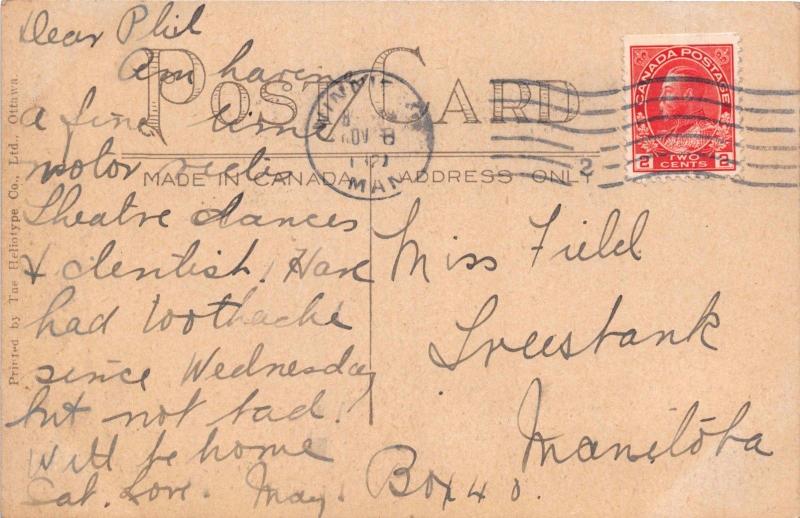 Dear Phil
Am having
a fine time
motor
Theatre dances
& dentist! Have
had toothache
since Wednesday
but not bad!
Will be home
Sat. Love. May.
POST CARD
MADE IN CANADA
ADDRESS ONLY
Miss Field
Treesbank
Manitoba
Box 40.
Printed by The Heliotype Co., Ltd., Ottawa.
NOV 8
MAN
2
CANADA POSTAGE
2 TWO CENTS 2